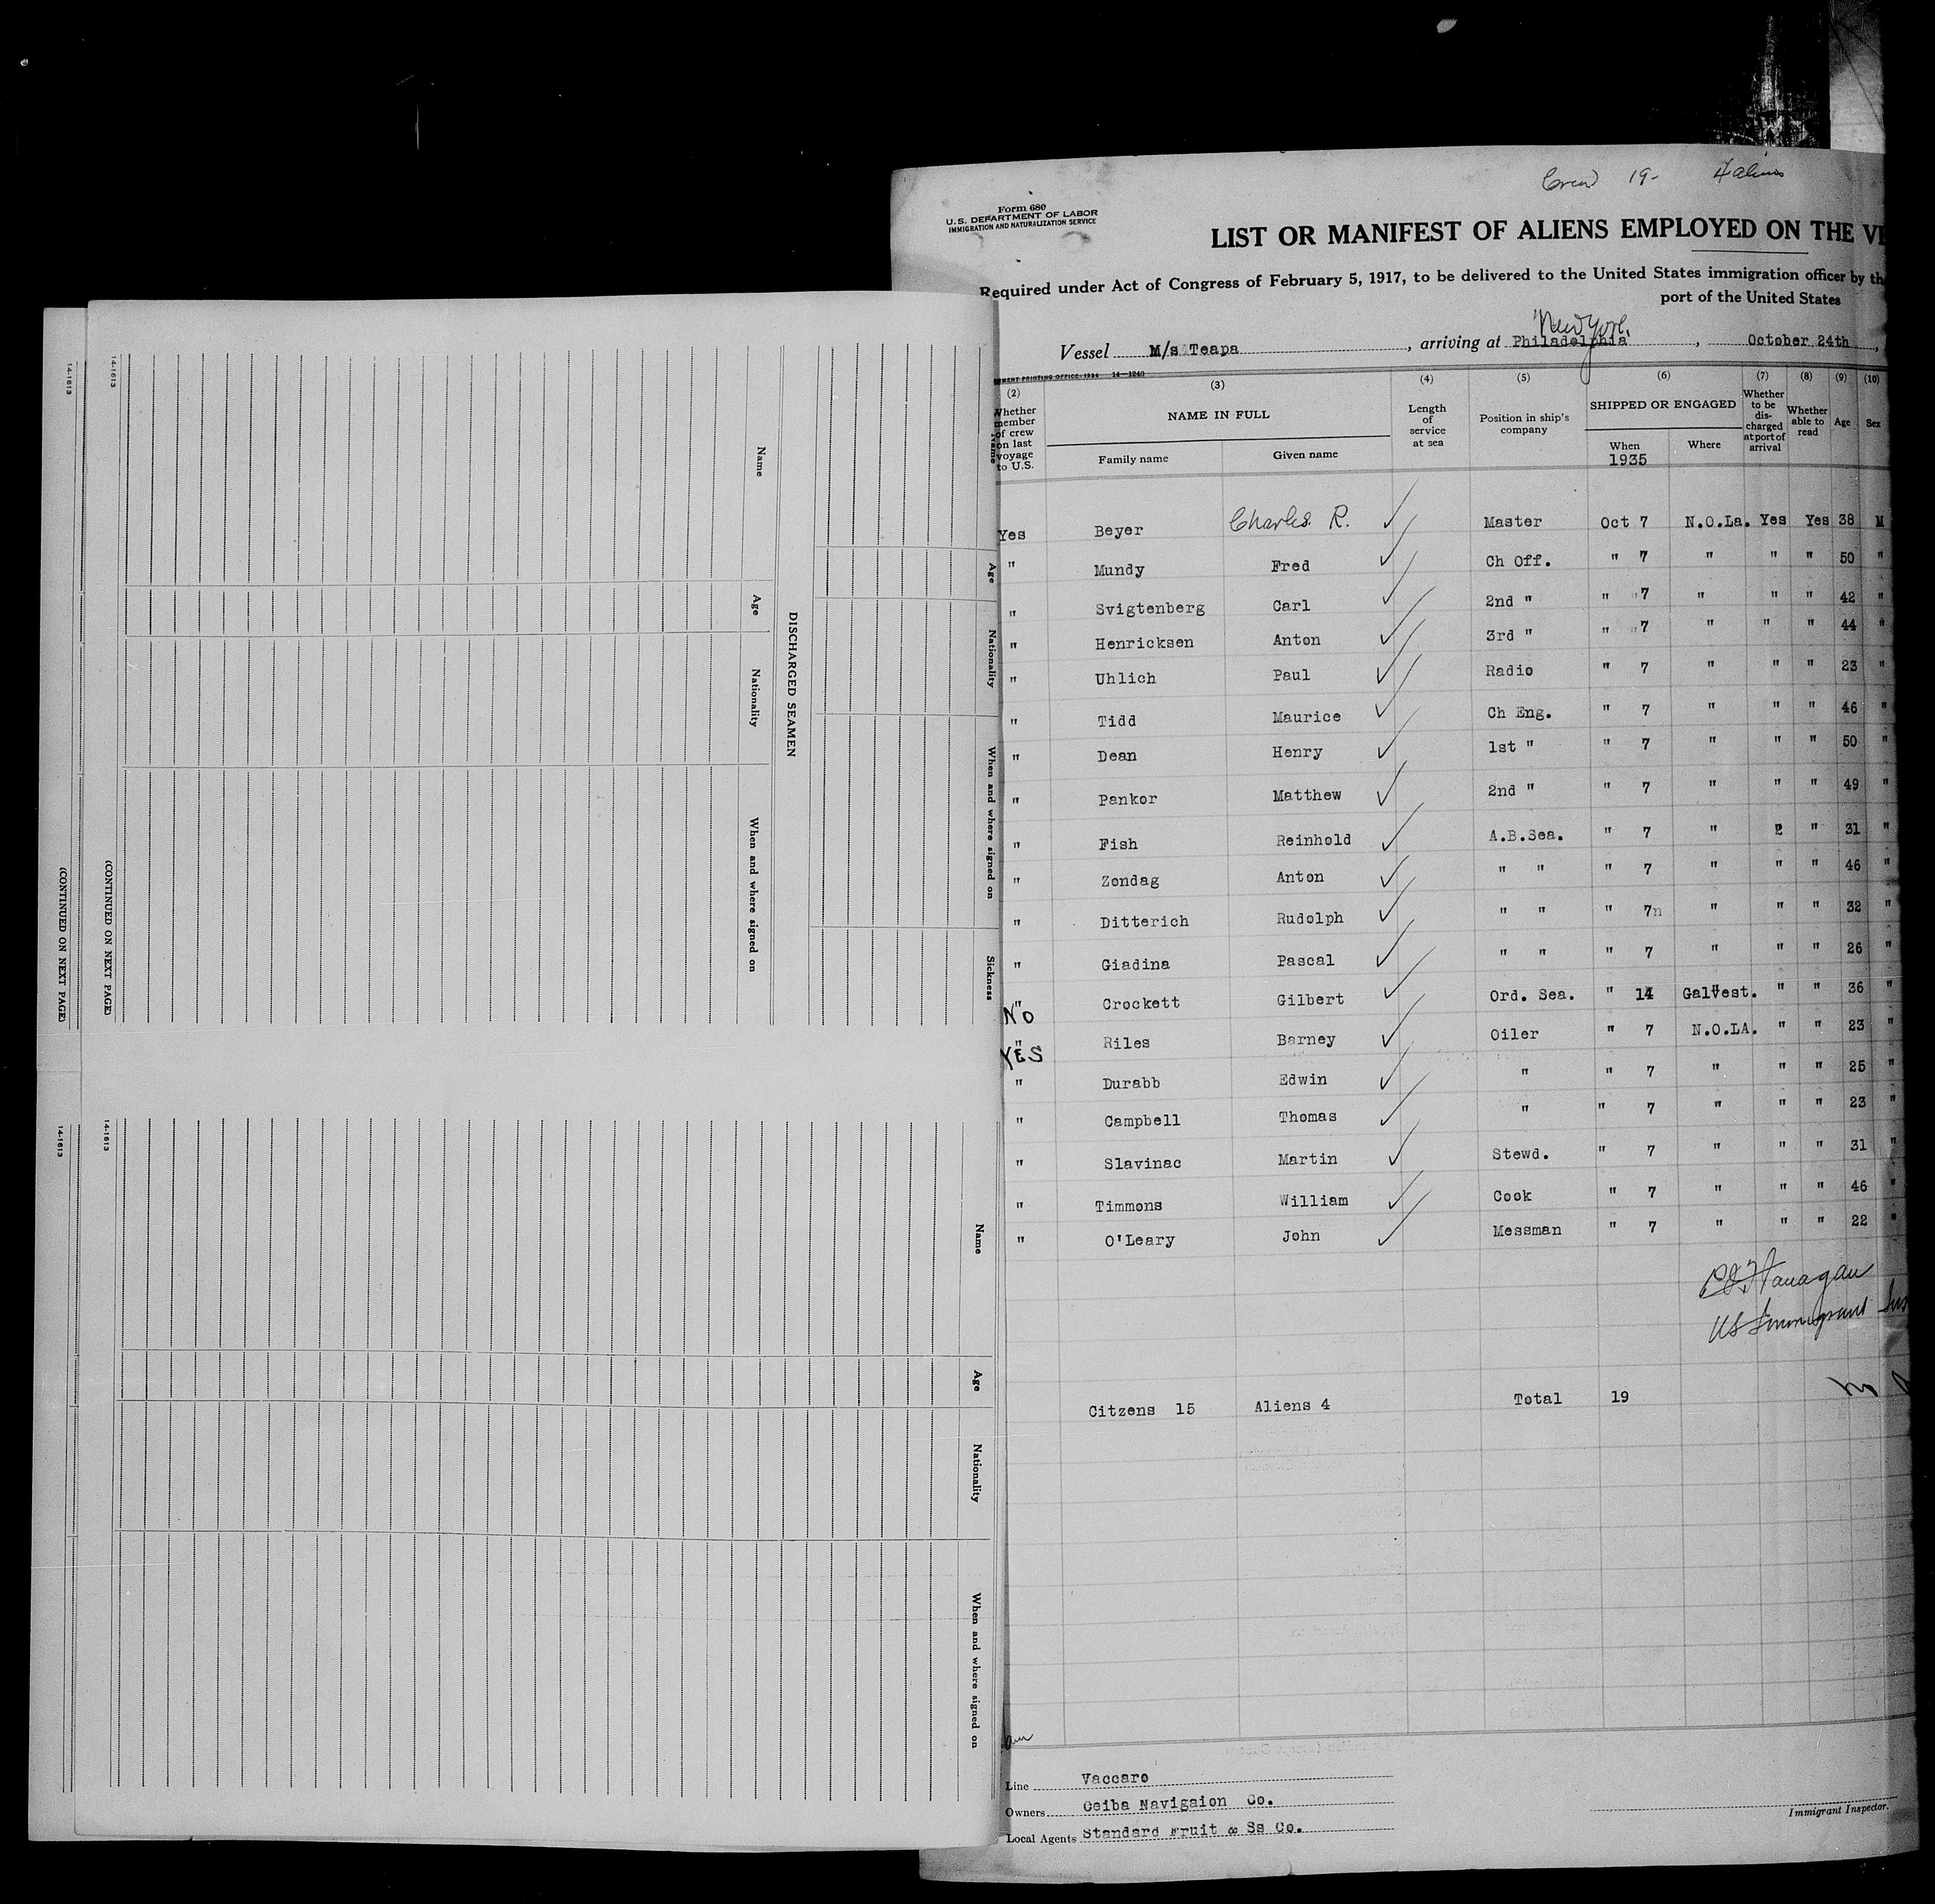 Crew 19- 4 aliens
Form 680
U. S. DEPARTMENT OF LABOR
IMMIGRATION AND NATURALIZATION SERVICE
LIST OR MANIFEST OF ALIENS EMPLOYED ON THE
Required under Act of Congress of February 5, 1917, to be delivered to the United States immigration officer by the
port of the United States
New York
Vessel M/s Teapa , arriving at Philadelphia , October 24th ,
PRINTING OFFICE: 1934 14-1240
(2) (3) (4) (5) (6) (7) (8) (9) (10)
Whether member of crew on last voyage to U.S. NAME IN FULL Length of service at sea Position in ship's company SHIPPED OR ENGAGED Whether to be discharged at port of arrival Whether able to read Age Sex
Family name Given name When Where
1935
Yes Beyer Charles R. Master Oct 7 N.O.La. Yes Yes 38 M
" Mundy Fred Ch Off. " 7 " " " 50 "
" Svigtenberg Carl 2nd " " 7 " " " 42 "
" Henricksen Anton 3rd " " 7 " " " 44 "
" Uhlich Paul Radio " 7 " " " 23 "
" Tidd Maurice Ch Eng. " 7 " " " 46 "
" Dean Henry 1st " " 7 " " " 50 "
" Pankor Matthew 2nd " " 7 " " " 49 "
" Fish Reinhold A.B.Sea. " 7 " " " 31 "
" Zondag Anton " " " 7 " " " 46 "
" Ditterich Rudolph " " " 7 " " " 32 "
" Giadina Pascal " " " 7 " " " 26 "
" NO Crockett Gilbert Ord. Sea. " 14 Galvest. " " 36 "
" YES Riles Barney Oiler " 7 N.O.LA. " " 23 "
" Durabb Edwin " " 7 " " " 25 "
" Campbell Thomas " " 7 " " " 23 "
" Slavinac Martin Stewd. " 7 " " " 31 "
" Timmons William Cook " 7 " " " 46 "
" O'Leary John Messman " 7 " " " 22 "
Flanagan
US Immigrant
Citzens 15 Aliens 4 Total 19
Line Vaccaro
Owners Ceiba Navigaion Co.
Local Agents Standard Fruit & Ss Co.
Immigrant Inspector.
14-1613
14-1613
(CONTINUED ON NEXT PAGE)
(CONTINUED ON NEXT PAGE)
14-1613
14-1613
DISCHARGED SEAMEN
Name Age Nationality When and where signed on
Name Age Nationality When and where signed on Sickness
Name Age Nationality When and where signed on